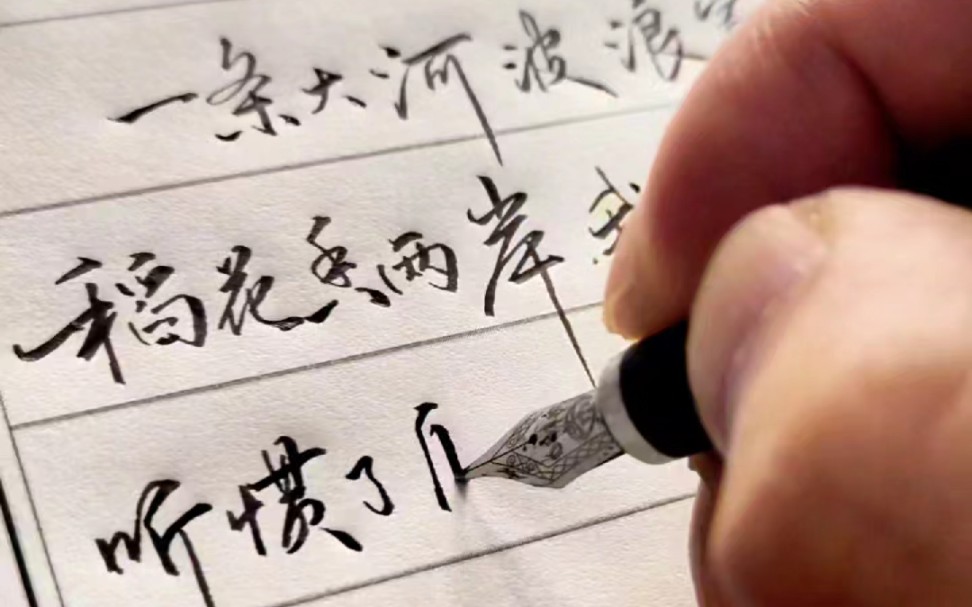 一条大河波浪
稻花香两岸
听惯了